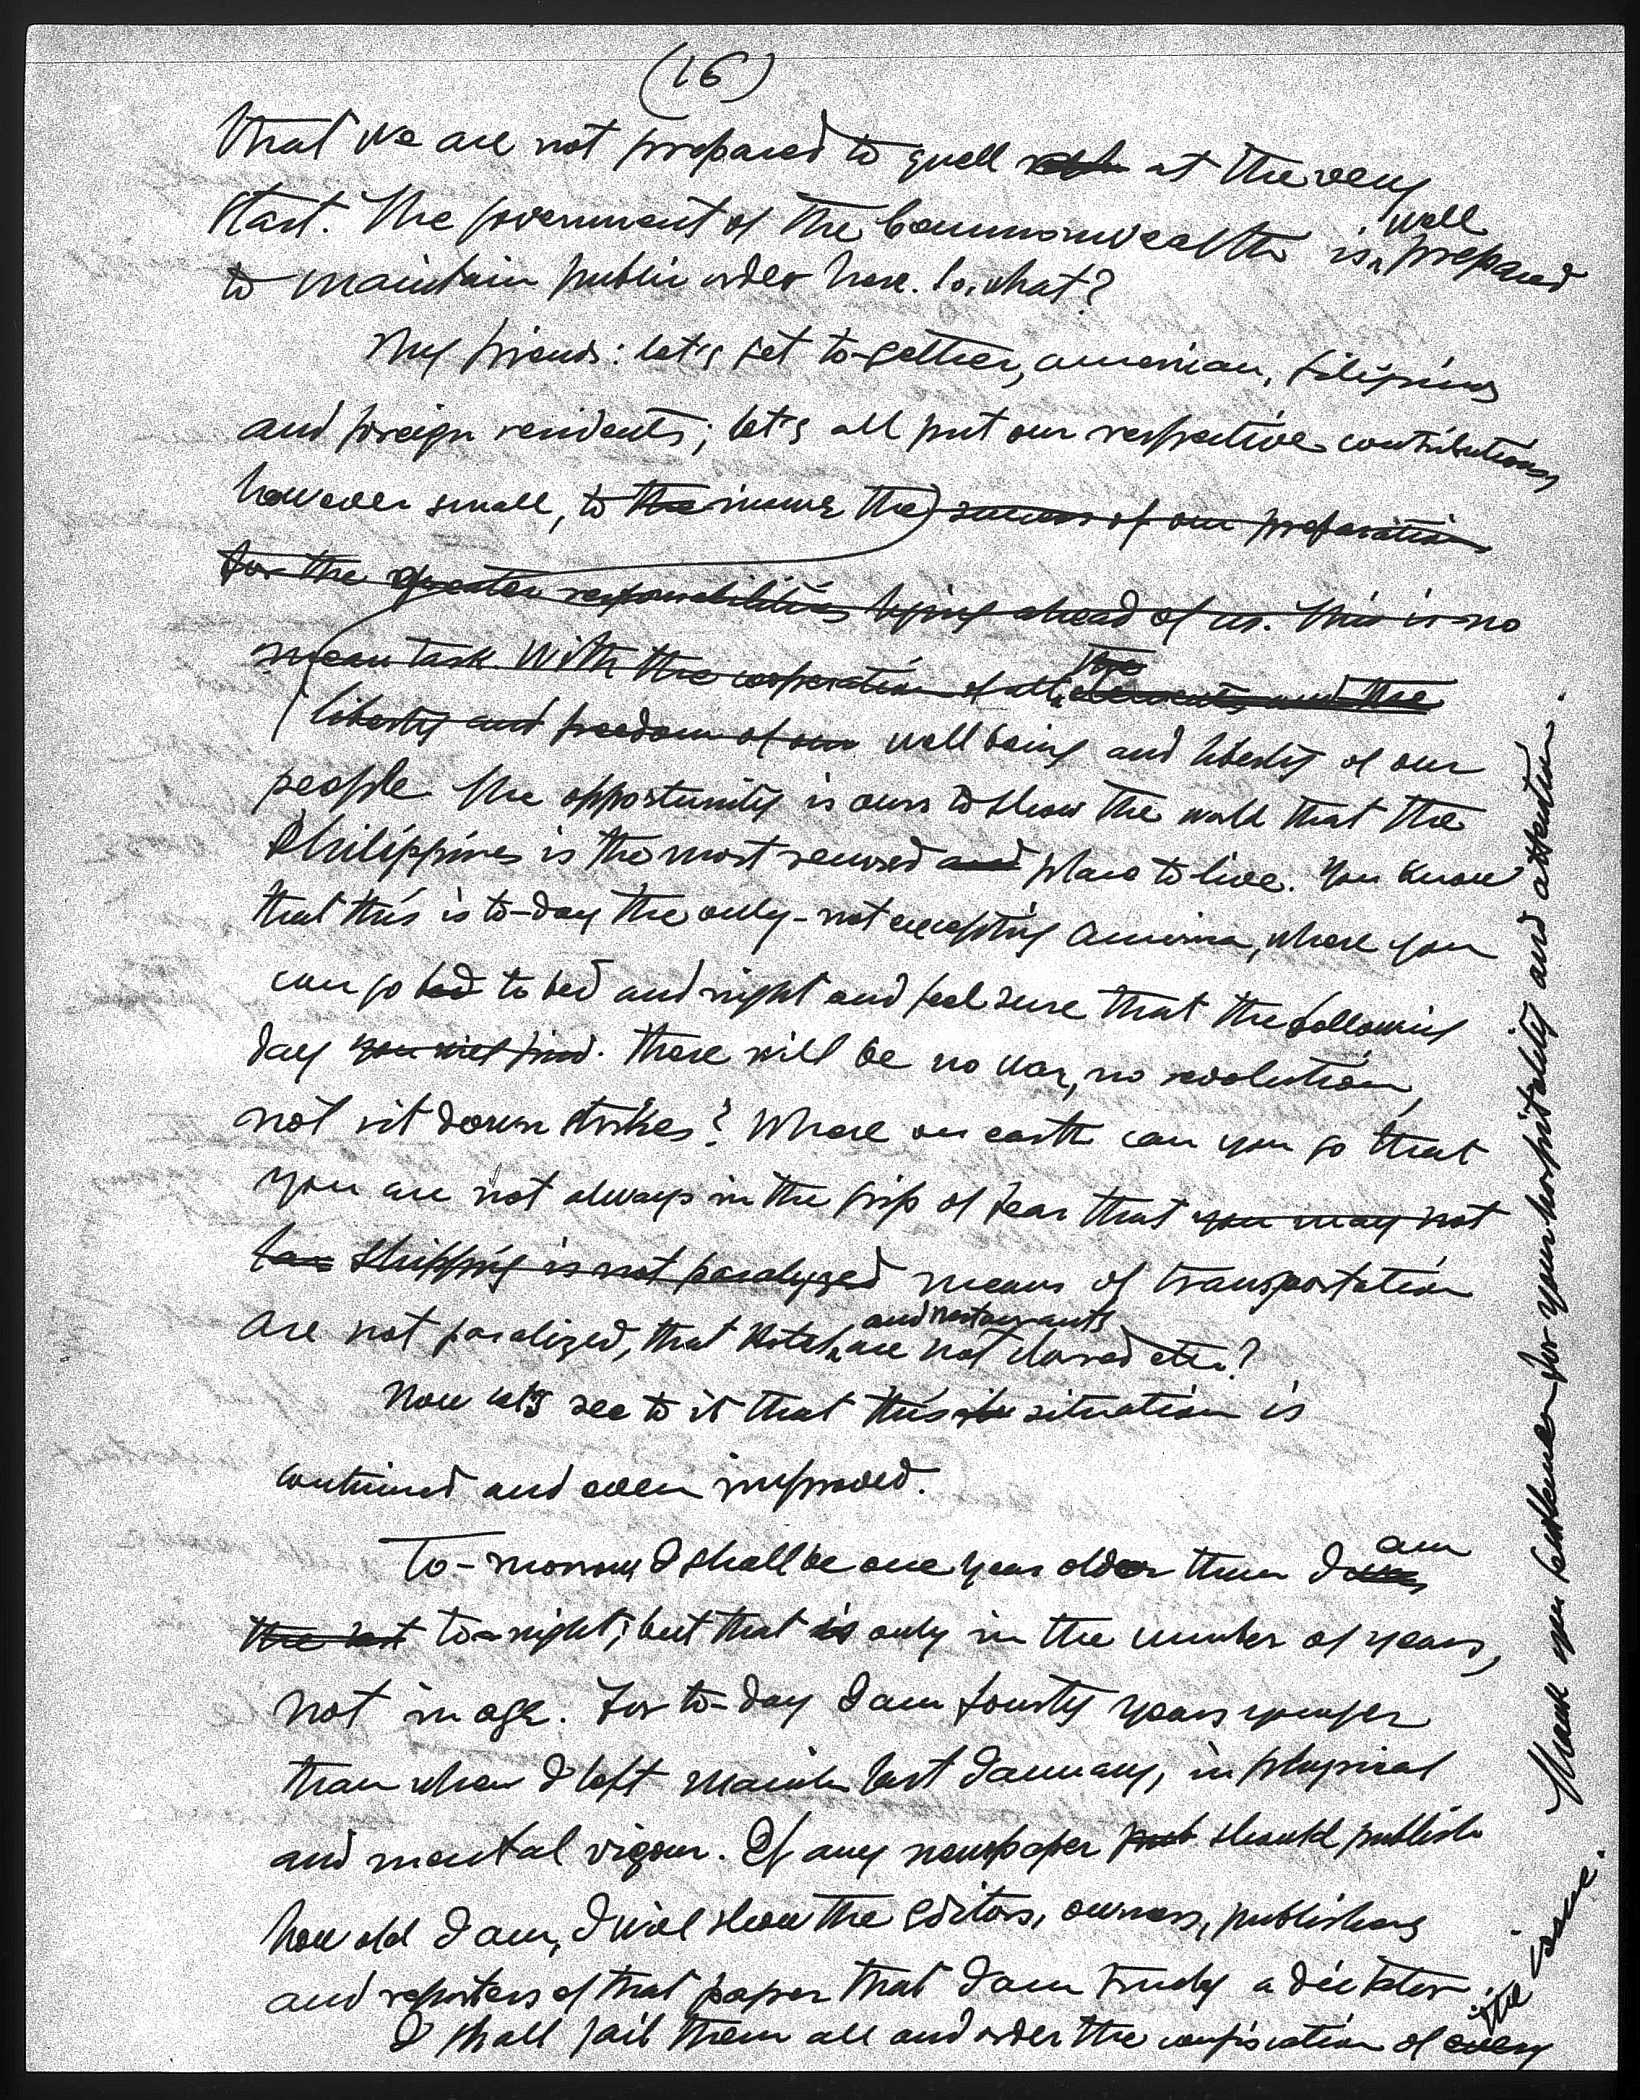 (16)
that we are not prepared to quell at the very
start. The government of the Commonwealth is well prepared
to maintain public order here. So, what?
My friends: let's get to-gether, american, filipinos
and foreign residents; let's all put our respective contributions
however small, to the insure the success of our preparation
for the greater responsibilities lying ahead of us. This is no
mean task. With the cooperation of all the elements and the
liberty and freedom of our well being and liberty of our
people. The opportunity is ours to show the world that the
Philippines is the most secured and place to live. You know
that this is to-day the only - not excepting America, where you
can go bed to bed and night and feel sure that the following
day you will find. there will be no war, no revolution,
not sit down strikes? Where on earth can you go that
you are not always in the grip of fear that you may not
shipping is not paralyzed means of transportation
are not paralized, that Hotels and restaurants are not closed etc.?
Now let's see to it that this situation is
continued and even improved.
To-morrow I shall be one year older than I was am
the last to-night; but that is only in the number of years,
not in age. For to-day I am fourty years younger
than when I left Manila last January, in physical
and mental vigour. If any newspaper pub should publish
how old I am, I will show the editors, owners, publishers
and reporters of that paper that I am truely a dictator.
I shall jail them all and order the confiscation of every
the issue.
Thank you gentlemen for your hospitality and attention.